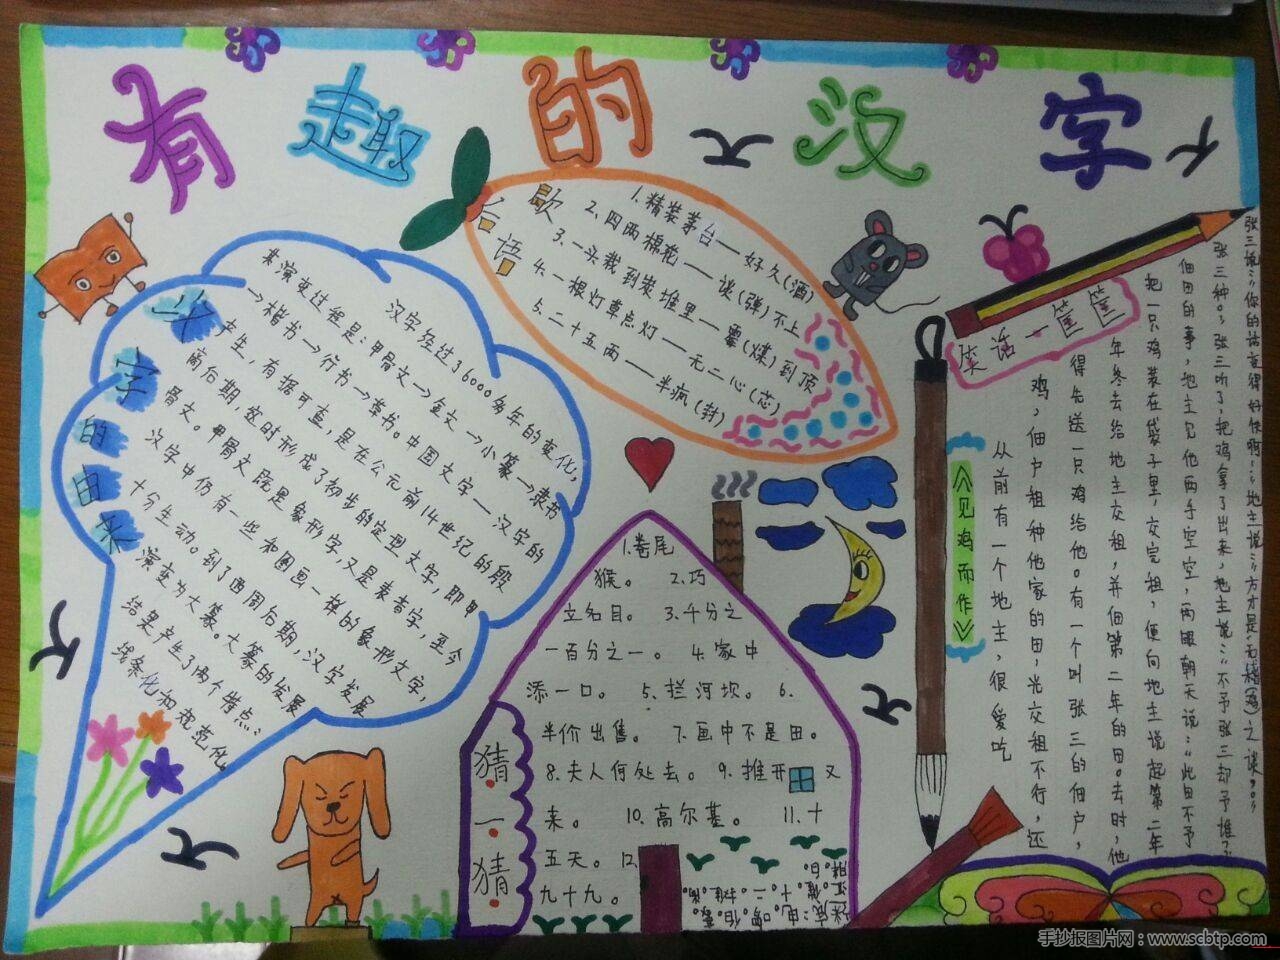 有趣的汉字
汉字的由来
汉字经过了6000多年的变化,
其演变过程是:甲骨文→金文→小篆→隶书
→楷书→行书→草书。中国文字——汉字的
产生,有据可查,是在公元前14世纪的殷
商后期,这时形成了初步的定型文字,即甲
骨文。甲骨文既是象形字又是表音字,至今
汉字中仍有一些和图画一样的象形文字,
十分生动。到了西周后期,汉字发展
演变为大篆。大篆的发展
结果产生了两个特点:
线条化和规范化。
歇
后
语
1.精装茅台——好久(酒)
2.四两棉花——谈(弹)不上
3.一头栽到炭堆里——霉(煤)到顶
4.一根灯草点灯——无二心(芯)
5.二十五两——半疯(封)
笑话一筐筐
《见鸡而作》
从前有一个地主,很爱吃
鸡,佃户租种他家的田,光交租不行,还
得先送一只鸡给他。有一个叫张三的佃户,
年冬去给地主交租,并佃第二年的田。去时,他
把一只鸡装在袋子里,交完租,便向地主说起第二年
佃田的事,地主见他两手空空,两眼朝天说:“此田不予
张三种。”张三听了,把鸡拿了出来,地主说:“不予张三却予谁?”
张三说:“你的话变得好快啊!”地主说:“方才是无稽(鸡)之谈,
猜一猜
1.卷尾
猴。 2.巧
立名目。 3.千分之
一百分之一。 4.家中
添一口。 5.拦河坝。 6.
半价出售。 7.画中不是田。
8.夫人何处去。 9.推开 又
来。 10.高尔基。 11.十
五天。 12.
九十九。
手抄报图片网:www.scbtp.com